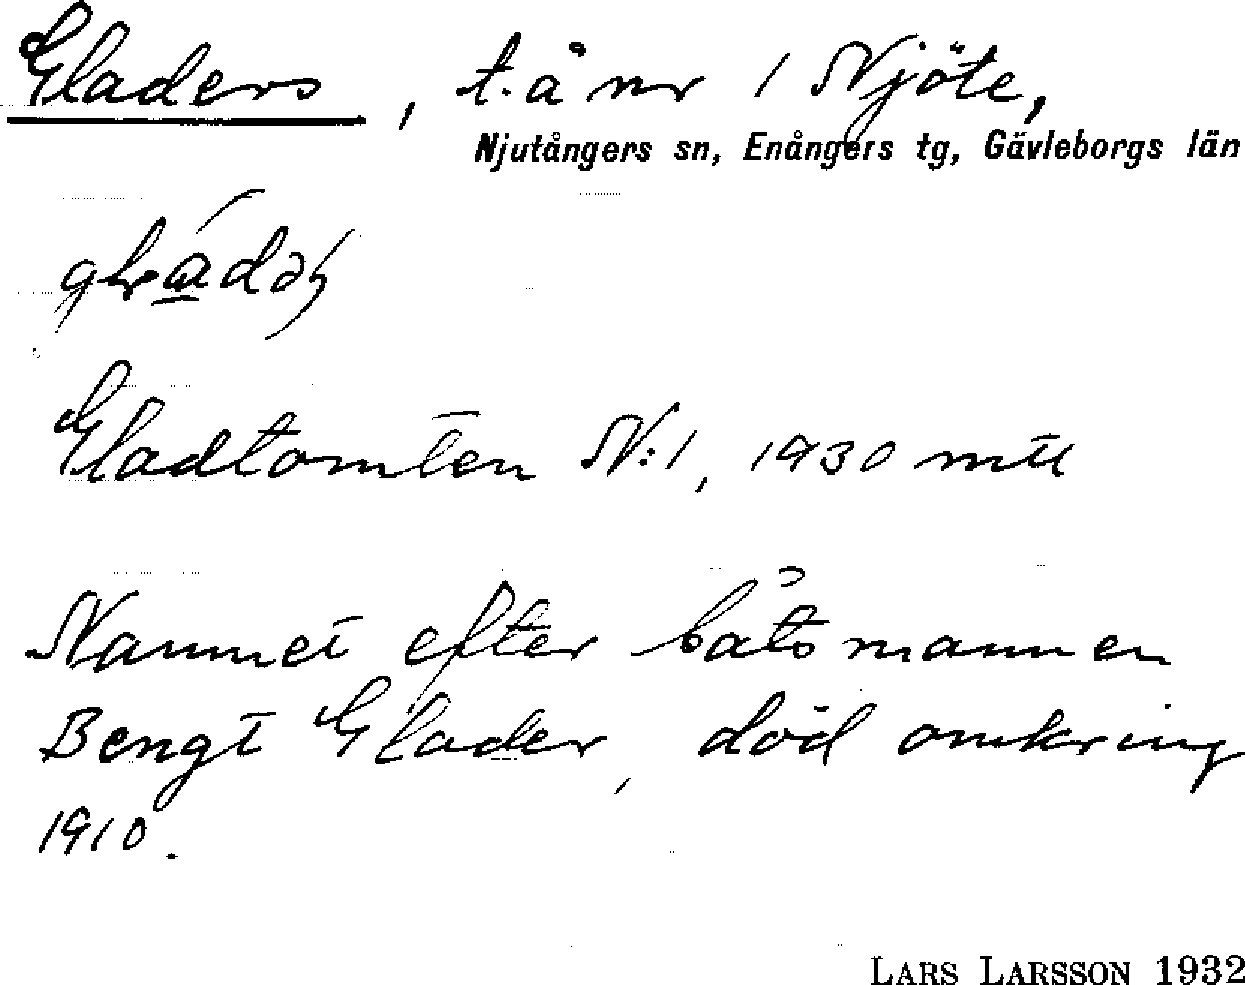 Gladers, t. å nr 1 Njöte,
Njutångers sn, Enångers tg, Gävleborgs län
Gladtomten N:1, 1930 mtl
Namnet efter båtsmannen
Bengt Glader, död omkring
1910.
LARS LARSSON 1932